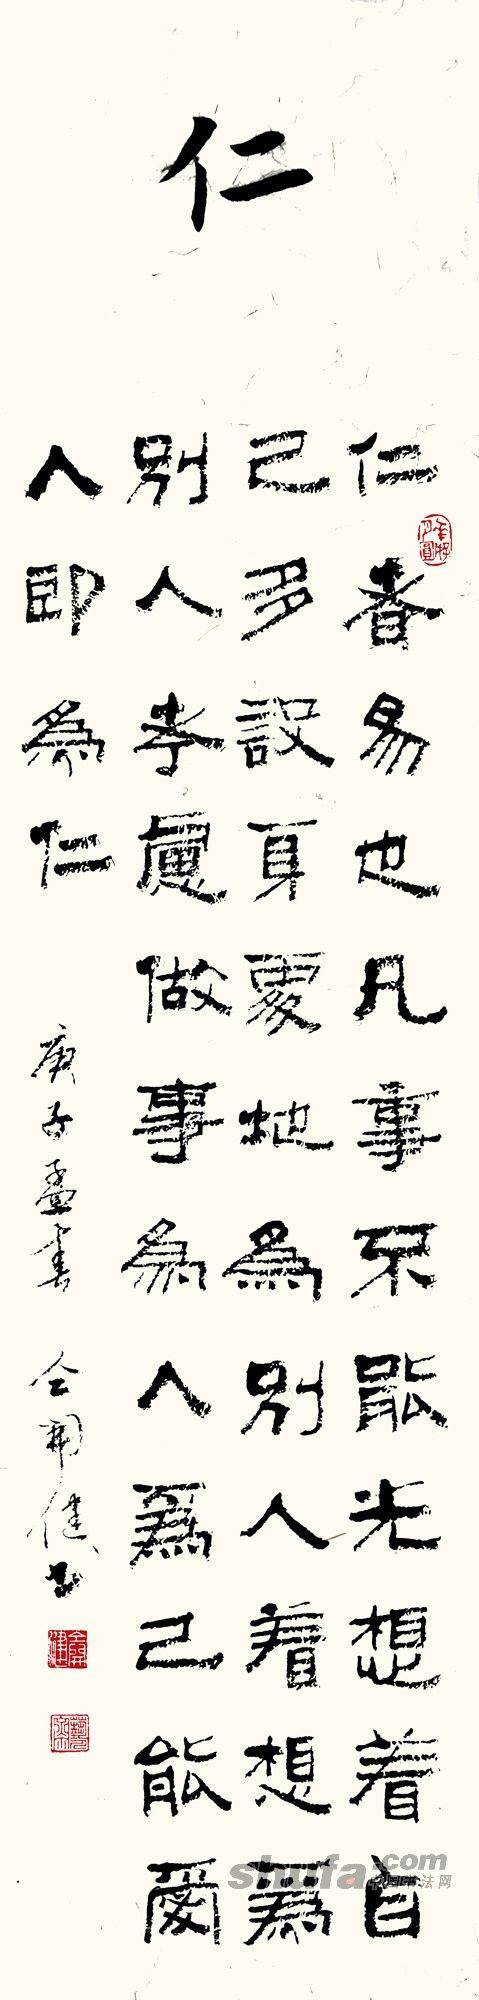 仁
仁者易也凡事不能光想着自
己多設身處地為別人着想爲
別人考慮做事為人爲己能愛
人即為仁
庚子孟春 仝開健書
shufa.com
中国书法网